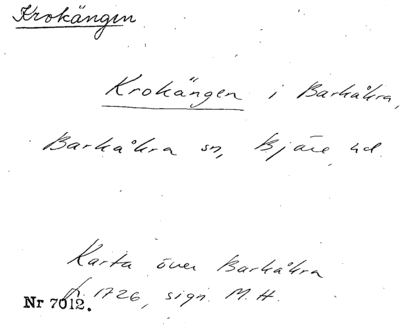 Krokängen
Krokängen i Barkåkra,
Barkåkra sn, Bjäre hd.
Karta över Barkåkra
fr. 1726, sign. M. H.
Nr 7012.